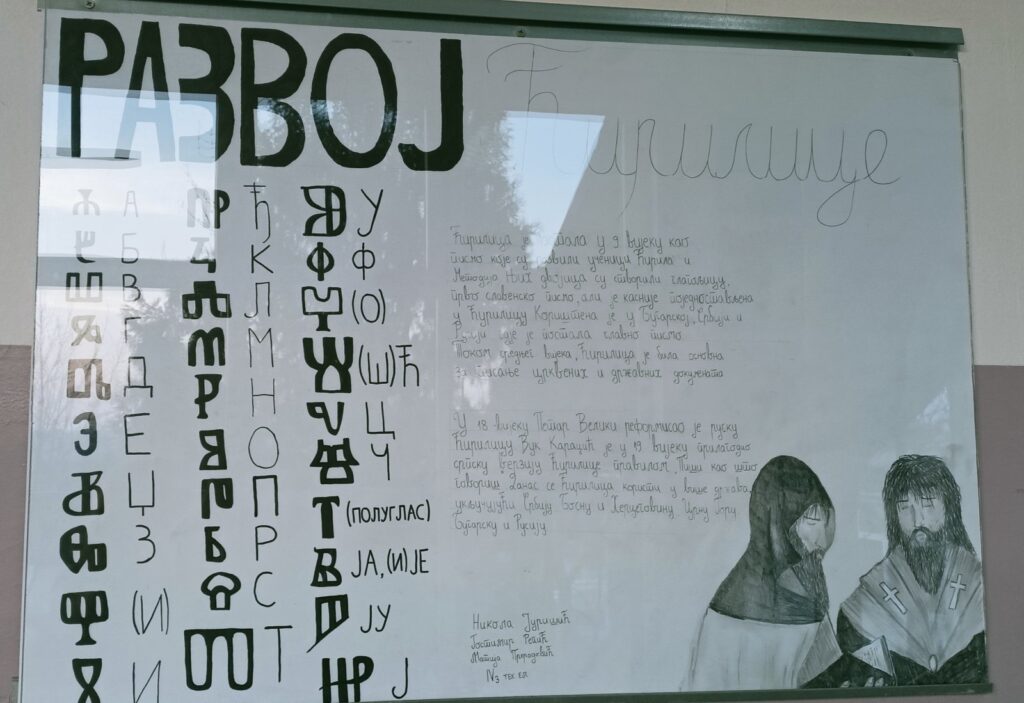 РАЗВОЈ
Ћирилице
А
Б
В
Г
Д
Е
Џ
З
(И)
И
Ђ
К
Л
М
Н
О
П
Р
С
Т
У
Ф
(О)
(Ш)Ћ
Ц
Ч
(ПОЛУГЛАС)
ЈА, (И)ЈЕ
ЈУ
Ј
Ћирилица је у 9 вијеку као
писмо које су развили ученици Ћирила и
Методија Њих двојица су створили глагољицу,
прво славенско писмо, али је касније поједностављена
у Ћирилицу Кориштена је у Бугарској, Србији и
гдје је постала главно писмо.
Током средњег вијека, Ћирилица је била основна
за писање црквених и државних докумената
У 18 вијеку Петар Велики реформисао је руску
Ћирилицу Вук Караџић је у 19 вијеку прилагодио
српску верзију Ћирилице правилом, Пиши као што
говориш. Данас се Ћирилица користи у више држава,
укључујући Србију Босну и Херцеговину Црну Гору
Бугарску и Русију
Никола
Гостимир
Матија
IV3 тех ел